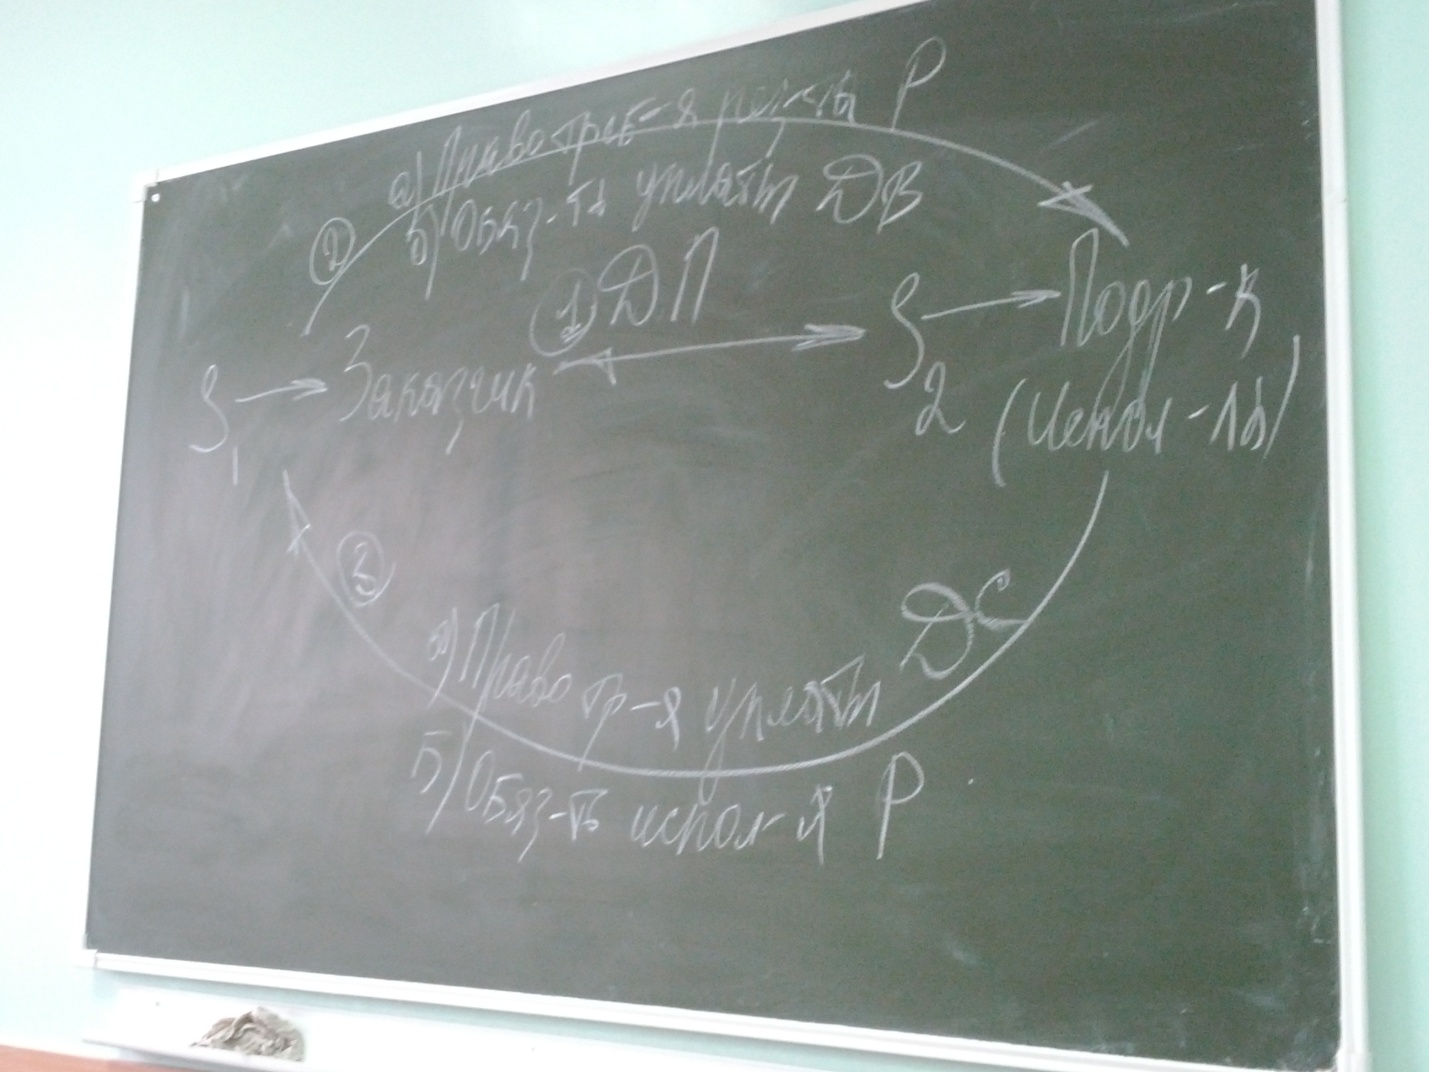 а) Право треб-я рез-ты Р
② б) Обяз-ть уплаты ДВ
① ДП
S1 → Заказчик
S2 → Подр-к
(испол-ль)
③
а) Право тр-я уплаты ДС
Б) Обяз-ть испол-я Р